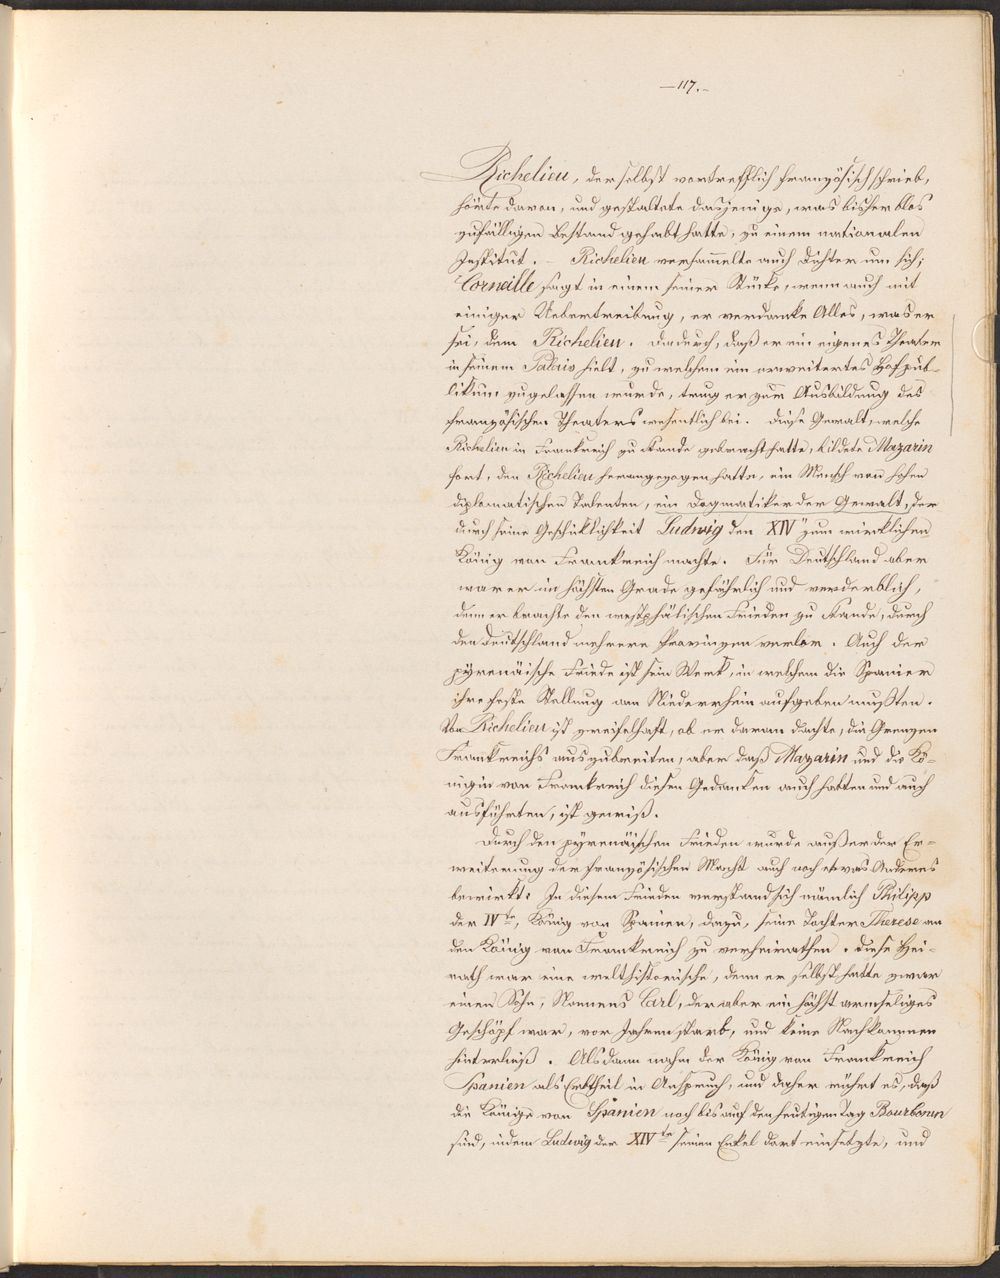 — 117. –
Richelieu, der selbst vortrefflich französisch schrieb,
hörte davon, und gestaltete dasjenige, was bisher blos
zufälligen Bestand gehabt hatte, zu einem nationalen
Institut. – Richelieu versam̄elte auch Dichter um sich;
Corneille sagt in einem seiner Stücke, wenn auch mit
einiger Uebertreibung, er verdanke Alles, was er
sei, dem Richelieu. Dadurch, daß er ein eigenes Theater
in seinem Palais hielt, zu welchem ein erweitertes Hofpub-
likum zugelassen wurde, trug er zur Ausbildung des
französischen Theaters wesentlich bei. Diese Gewalt, welche
Richelieu in Frankreich zu Stande gebracht hatte, bildete Mazarin
fort, den Richelieu herangezogen hatte, ein Mensch von hohen
diplomatischen Talenten, ein Dogmatiker der Gewalt, der
durch seine Geschicklichkeit Ludwig den XIV zum wirklichen
König von Frankreich machte. Für Deutschland aber
war er im höchsten Grade gefährlich und verderblich,
denn er brachte den westphälischen Frieden zu Stande, durch
den Deutschland mehrere Provinzen verlor. Auch der
pyrenäische Friede ist sein Werk, in welchem die Spanier
ihre feste Stellung am Niederrhein aufgeben mußten.
Von Richelieu ist zweifelhaft, ob er daran dachte, die Grenzen
Frankreichs auszubreiten, aber daß Mazarin und die Kö-
nigin von Frankreich diesen Gedanken auch hatten und auch
ausführten, ist gewiß.
Durch den pyrenäischen Frieden wurde außer der Er-
weiterung der französischen Macht auch noch etwas Anderes
bewirkt: In diesem Frieden verstand sich nämlich Philipp
der IVte, König von Spanien, dazu, seine Tochter Therese an
den König von Frankreich zu verheirathen. Diese Hei-
rath war eine welthistorische, denn er selbst hatte zwar
einen Sohn, Namens Carl, der aber ein höchst armseliges
Geschöpf war, vor Jahren starb, und keine Nachkommen
hinterließ. Alsdann nahm der König von Frankreich
Spanien als Erbtheil in Anspruch, und daher rührt es, daß
die Könige von Spanien noch bis auf den heutigen Tag Bourbonen
sind, indem Ludwig der XIVte seinen Enkel dort einsetzte, und